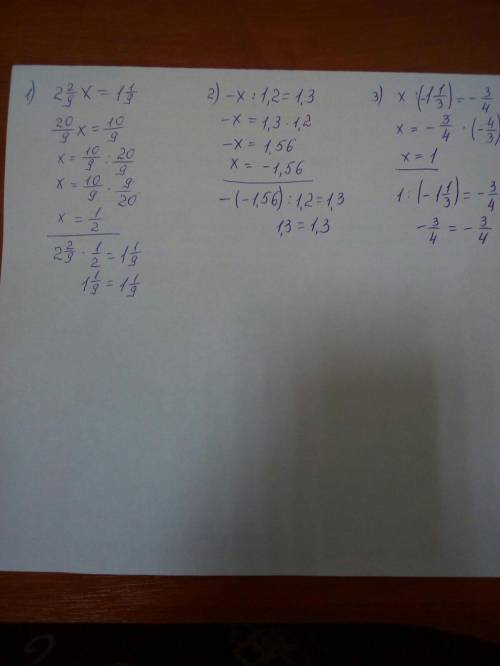 1) 2 2/9 x = 1 1/9
20/9 x = 10/9
x = 10/9 : 20/9
x = 10/9 · 9/20
x = 1/2
2 2/9 · 1/2 = 1 1/9
1 1/9 = 1 1/9
2) -x : 1,2 = 1,3
-x = 1,3 · 1,2
-x = 1,56
x = -1,56
-(-1,56) : 1,2 = 1,3
1,3 = 1,3
3) x : (-1 1/3) = -3/4
x = -3/4 · (-4/3)
x = 1
1 : (-1 1/3) = -3/4
-3/4 = -3/4